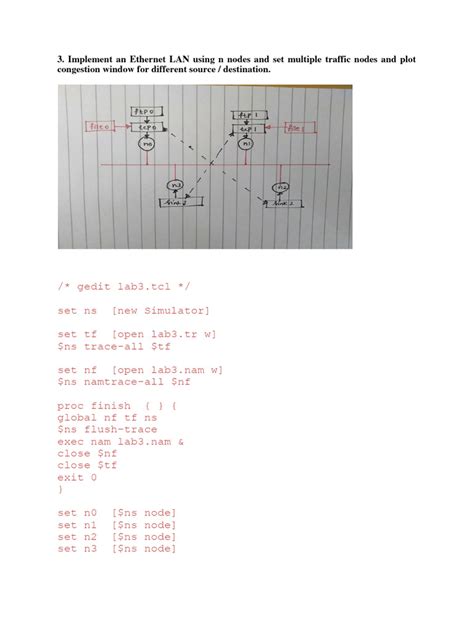 3. Implement an Ethernet LAN using n nodes and set multiple traffic nodes and plot
congestion window for different source / destination.
ftp0 ftp 1
file0 tcp0 tcp 1 file1
n0 n1
n3 n2
/* gedit lab3.tcl */
set ns [new Simulator]
set tf [open lab3.tr w]
$ns trace-all $tf
set nf [open lab3.nam w]
$ns namtrace-all $nf
proc finish { } {
global nf tf ns
$ns flush-trace
exec nam lab3.nam &
close $nf
close $tf
exit 0
}
set n0 [$ns node]
set n1 [$ns node]
set n2 [$ns node]
set n3 [$ns node]